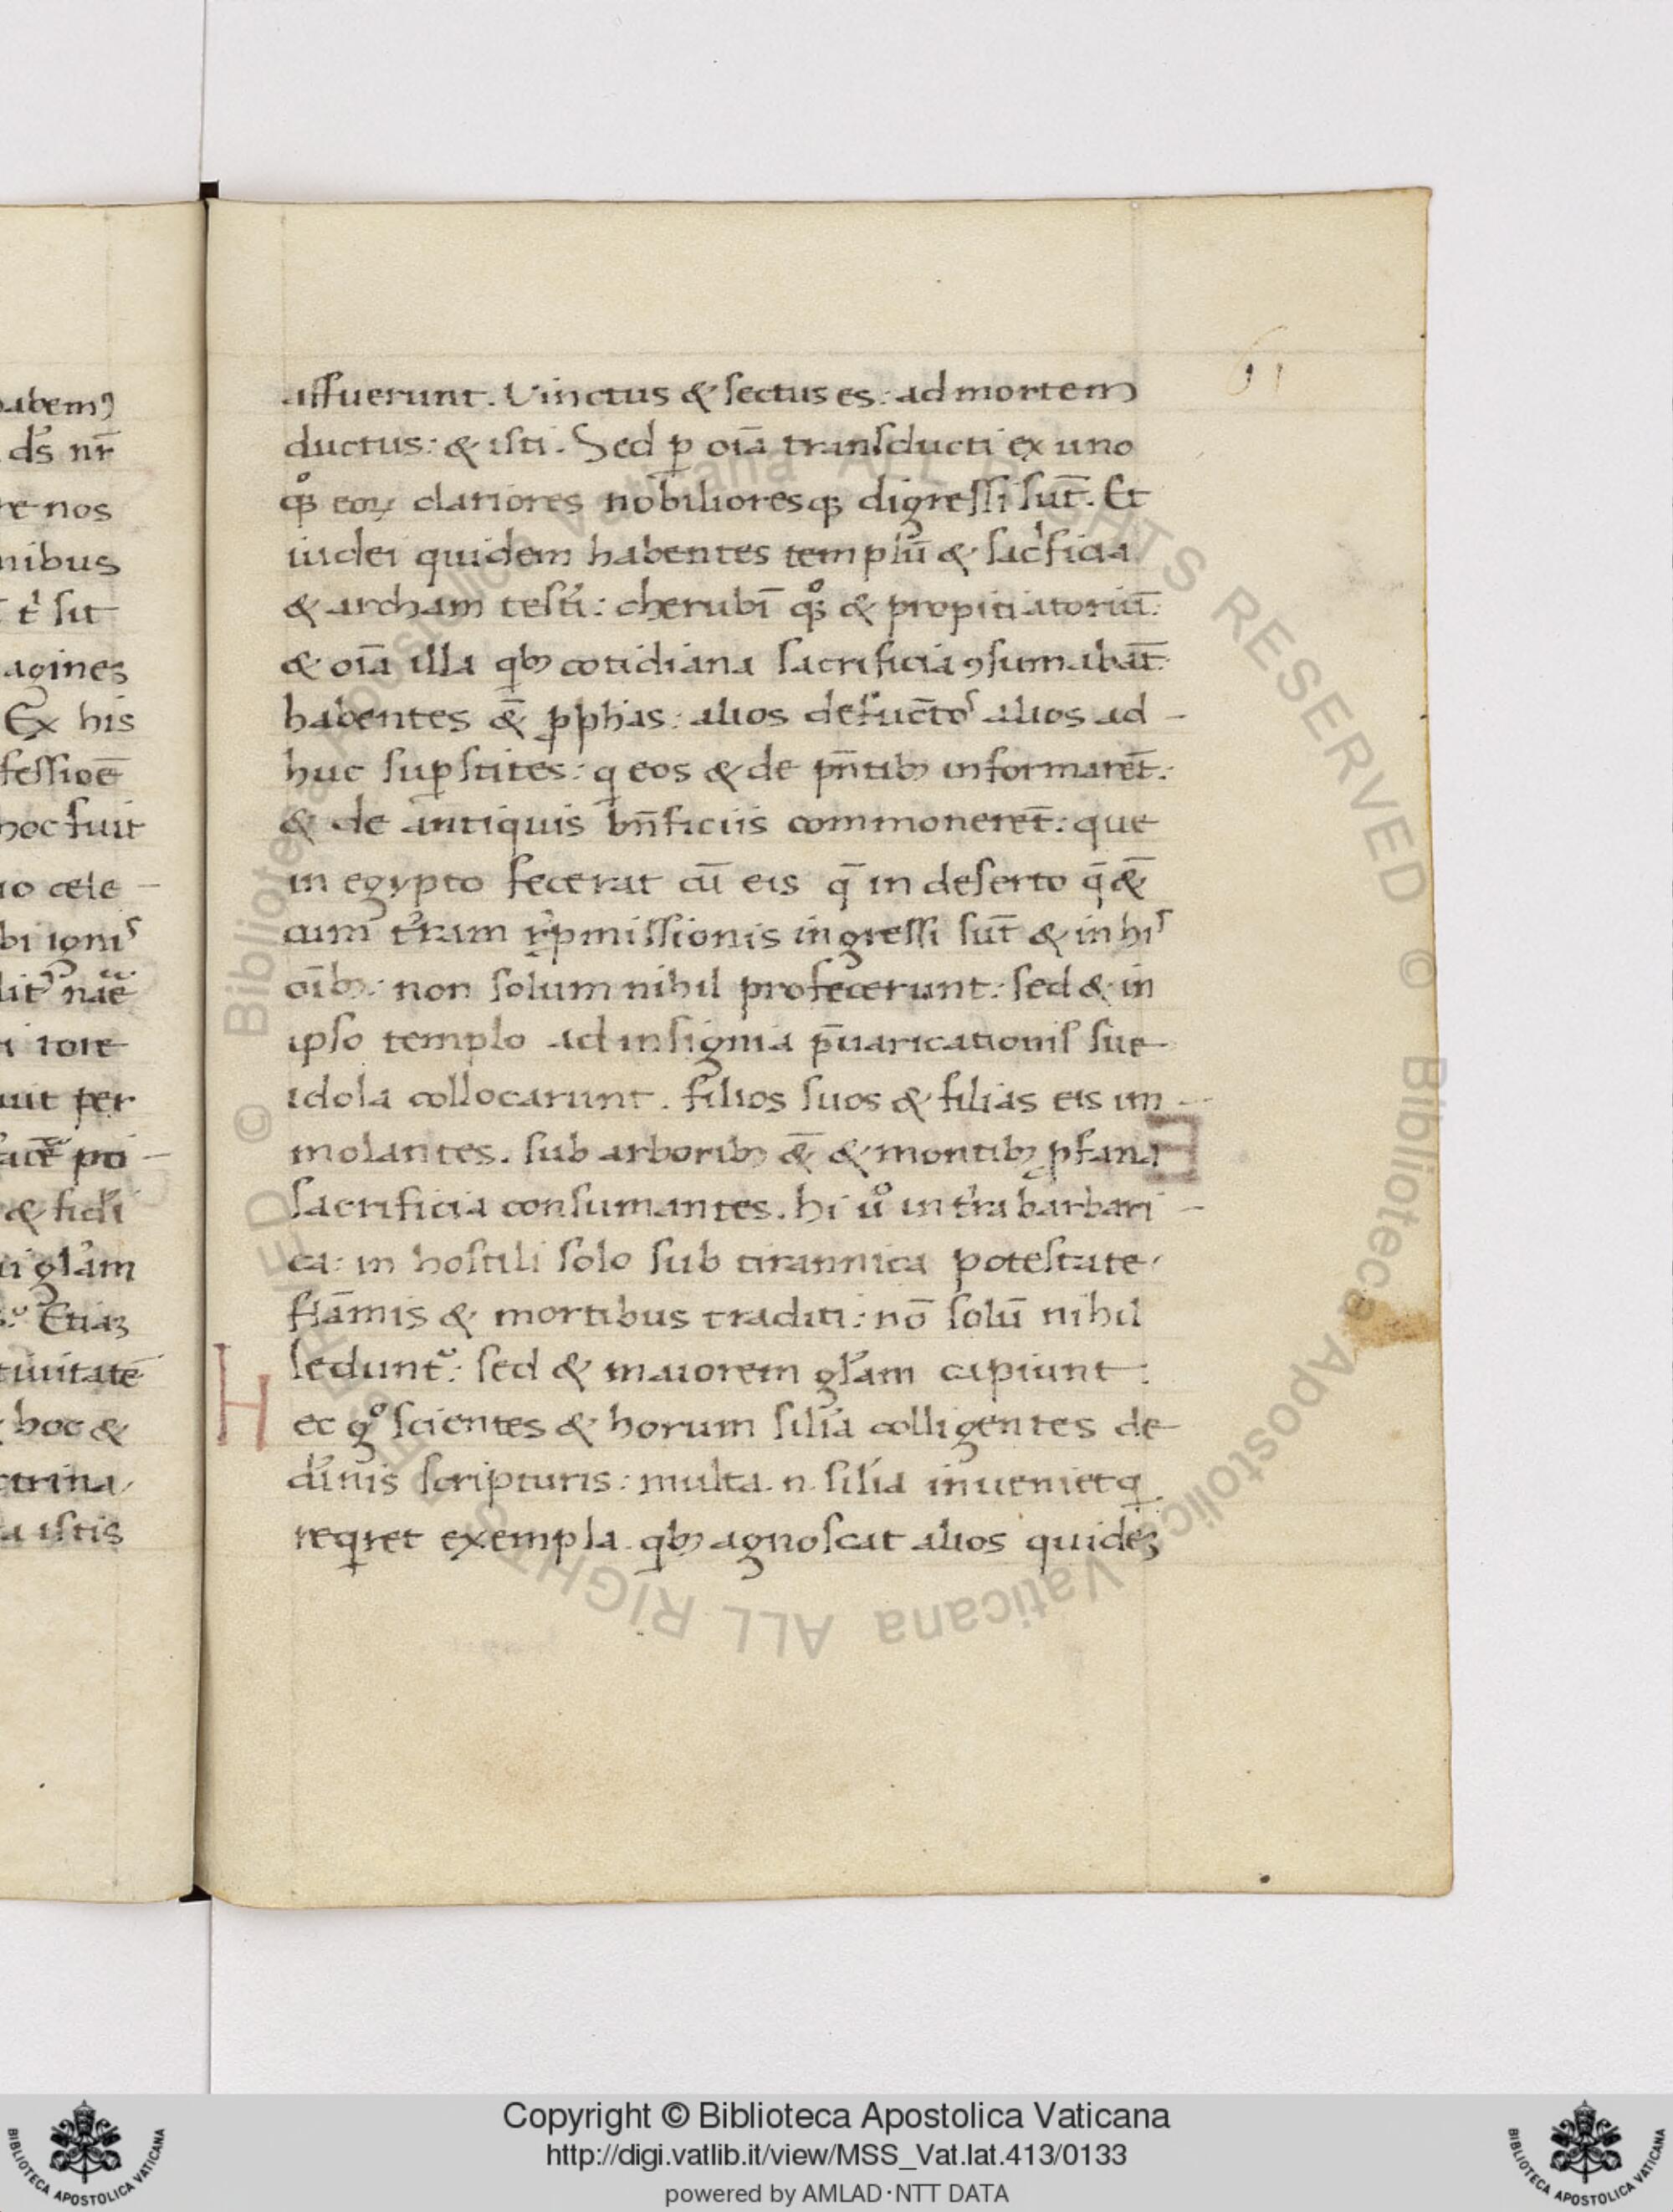 abem᷒
ds̄ nr̄
re nos
nibus
t̉ sit
agines
Ex his
fessiōe
hoc fuit
io cele -
bi ignis
lit̉ nāe
i iore
uit per
& fidi
i glām
Etiaꝫ
tiuitatē
hoc &
ctrina
a istis
61
assuerunt. Vinctus & sectus es: ad mortem
ductus: & isti. Sed ꝑ oīa transducti ex uno
qͦꝫ eoꝝ clariores nobilioresqꝫ digressi sūt. Et
iudei quidem habentes templū & sac̉ficia
& archam testī: cherubī qͦꝫ & propitiatoriū:
& oīa illa qbꝫ cotidiana sacrificia ꝯsumabāt:
habentes &̄ ꝓphas: alios defūctos alios ad -
huc suꝑstites: q eos & de pn̄tibꝫ informarēt:
& de antiquis bn̄ficiis commonerēt: que
in egypto fecerat cū eis q̄ in deserto q̄ &̄
cum t̉ram r̉ꝓmissionis ingressi sūt & in his
oībꝫ: non solum nihil profecerunt: sed & in
ipso templo ad insignia p̄uaricationis sue
idola collocarunt. filios suos & filias eis im -
molantes. sub arboribꝫ &̄ & montibꝫ ꝓfana
sacrificia consumantes. hi uͦ in t̉ra barbari -
ca: in hostili solo sub tirannica potestate
flāmis & mortibus traditi: nō solū nihil
leduntᷣ: sed & maiorem glām capiunt:
Hec gͦ scientes & horum silīa colligentes de
dīnis scripturis: multa .n. silīa inueniet q
reqret exempla. qbꝫ agnoscat alios quideꝫ
© Biblioteca Apostolica Vaticana ALL RIGHTS RESERVED
© Biblioteca Apostolica Vaticana ALL RIGHTS RESERVED
Copyright © Biblioteca Apostolica Vaticana
http://digi.vatlib.it/view/MSS_Vat.lat.413/0133
powered by AMLAD·NTT DATA
BIBLIOTECA APOSTOLICA VATICANA
BIBLIOTECA APOSTOLICA VATICANA